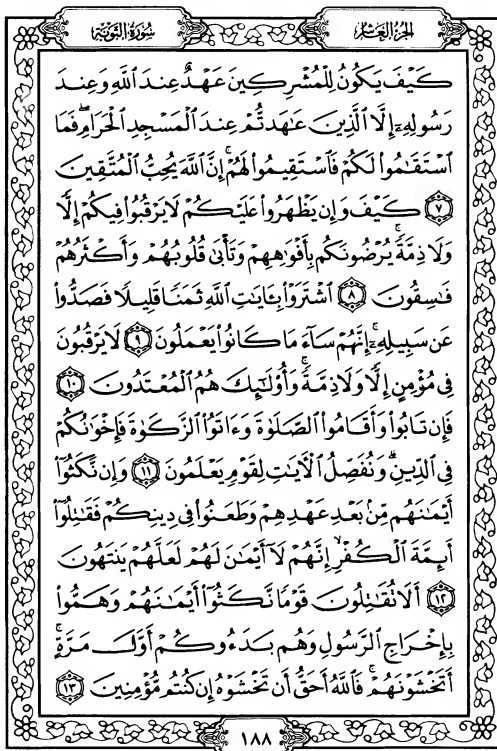 سُورَةُ التَّوْبَةِ
الجُزءُ العَاشِرُ
كَيْفَ يَكُونُ لِلْمُشْرِكِينَ عَهْدٌ عِندَ اللَّهِ وَعِندَ
رَسُولِهِۦٓ إِلَّا الَّذِينَ عَٰهَدتُّمْ عِندَ الْمَسْجِدِ الْحَرَامِ ۖ فَمَا
اسْتَقَٰمُوا لَكُمْ فَاسْتَقِيمُوا لَهُمْ ۚ إِنَّ اللَّهَ يُحِبُّ الْمُتَّقِينَ
﴿٧﴾ كَيْفَ وَإِن يَظْهَرُوا عَلَيْكُمْ لَا يَرْقُبُوا فِيكُمْ إِلًّا
وَلَا ذِمَّةً ۚ يُرْضُونَكُم بِأَفْوَٰهِهِمْ وَتَأْبَىٰ قُلُوبُهُمْ وَأَكْثَرُهُمْ
فَٰسِقُونَ ﴿٨﴾ اشْتَرَوْا بِـَٔايَٰتِ اللَّهِ ثَمَنًا قَلِيلًا فَصَدُّوا
عَن سَبِيلِهِۦٓ ۚ إِنَّهُمْ سَآءَ مَا كَانُوا يَعْمَلُونَ ﴿٩﴾ لَا يَرْقُبُونَ
فِى مُؤْمِنٍ إِلًّا وَلَا ذِمَّةً ۚ وَأُولَٰٓئِكَ هُمُ الْمُعْتَدُونَ ﴿١٠﴾
فَإِن تَابُوا وَأَقَامُوا الصَّلَوٰةَ وَءَاتَوُا الزَّكَوٰةَ فَإِخْوَٰنُكُمْ
فِى الدِّينِ ۗ وَنُفَصِّلُ الْءَايَٰتِ لِقَوْمٍ يَعْلَمُونَ ﴿١١﴾ وَإِن نَّكَثُوٓا
أَيْمَٰنَهُم مِّنۢ بَعْدِ عَهْدِهِمْ وَطَعَنُوا فِى دِينِكُمْ فَقَٰتِلُوٓا
أَئِمَّةَ الْكُفْرِ ۙ إِنَّهُمْ لَآ أَيْمَٰنَ لَهُمْ لَعَلَّهُمْ يَنتَهُونَ
﴿١٢﴾ أَلَا تُقَٰتِلُونَ قَوْمًا نَّكَثُوٓا أَيْمَٰنَهُمْ وَهَمُّوا
بِإِخْرَاجِ الرَّسُولِ وَهُم بَدَءُوكُمْ أَوَّلَ مَرَّةٍ ۚ
أَتَخْشَوْنَهُمْ ۚ فَاللَّهُ أَحَقُّ أَن تَخْشَوْهُ إِن كُنتُم مُّؤْمِنِينَ ﴿١٣﴾
١٨٨